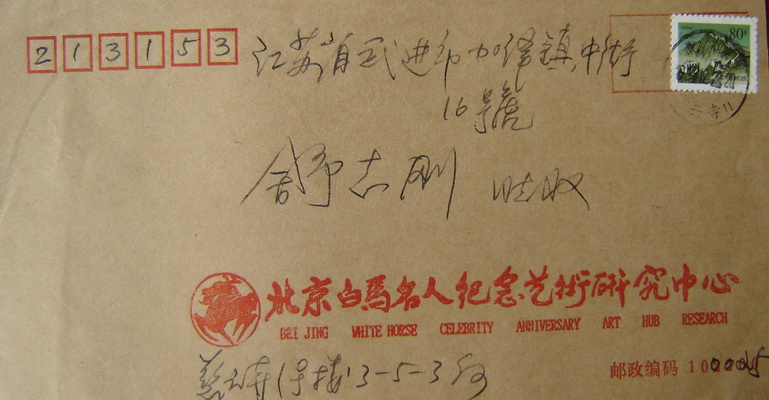 213153
江苏省武进市加泽镇中街
16号
舒志刚 收
80分
北京白马名人纪念艺术研究中心
BEI JING WHITE HORSE CELEBRITY ANNIVERSARY ART HUB RESEARCH
慈云寺1号楼3-5-3
邮政编码 100025